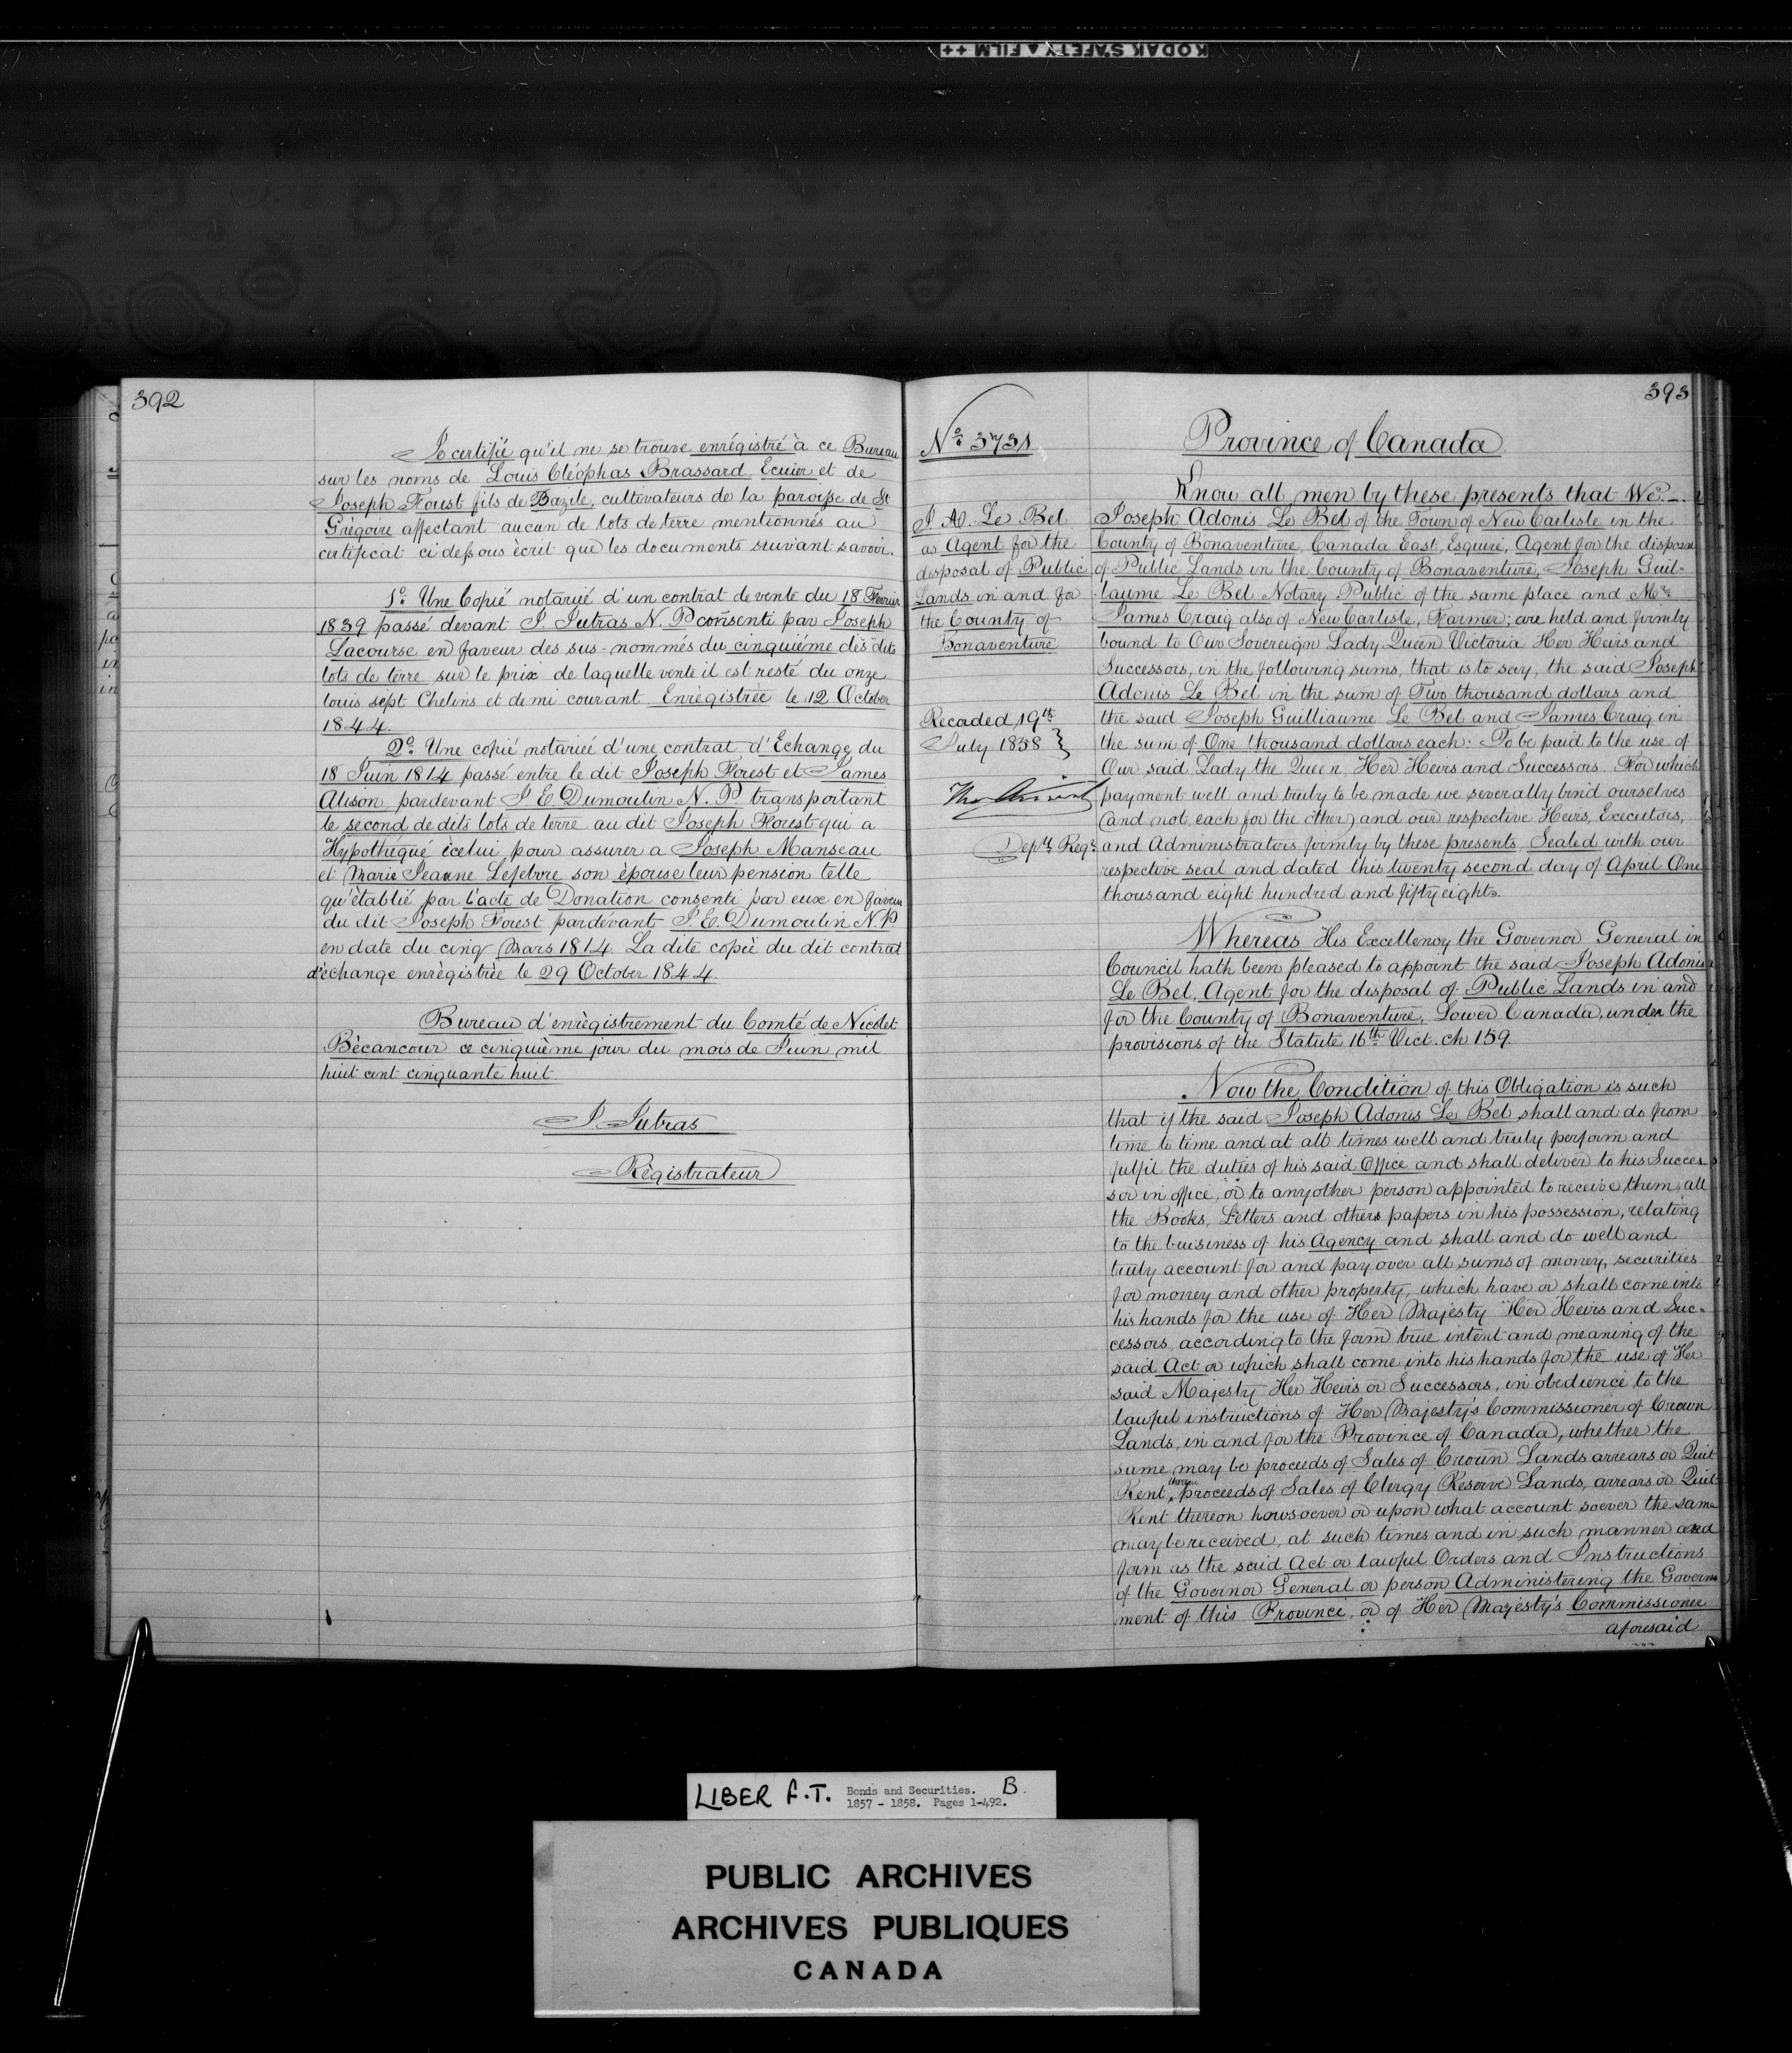 KODAK SAFETY FILM ++
392
Je certifié qu'il ne se trouve enrégistré à ce Bureau
sur les noms de Louis Cléophas Brassard Ecuier et de
Joseph Forest fils de Bazile, cultivateurs de la paroisse de St
Grégoire affectant aucun de lots de terre mentionnés au
certificat ci dessous ècrit que les documents suivant savoir.
1o. Une Copié notariée d'un contrat de vente du 18 Fevrier
1839 passé devant J. Jutras N. P consenti par Joseph
Lacourse en faveur des sus-nommés du cinquiéme des dits
lots de terre sur le prix de laquelle vente il est resté du onze
louis sept Chelins et demi courant Enrégistrée le 12 October
1844.
2o. Une copié notariée d'une contrat d'Echange du
18 Juin 1814 passé entre le dit Joseph Forest et James
Alison pardevant J E. Dumoulin N. P. transportant
le second de dits lots de terre au dit Joseph Forest qui a
Hypothequé icelui pour assurer a Joseph Manseau
et Marie Jeanne Lefebvre son épouse leur pension telle
qu'établié par l'acte de Donation consenti par eux en faveur
du dit Joseph Forest pardévant J. E. Dumoulin N. P.
en date du cinq Mars 1814. La dite copié du dit contrat
d'échange enrègistrée le 29 October 1844.
Bureau d'enrègistrement du Comté de Nicolet
Bècancour ce cinquième jour du mois de Juin mil
huit cent cinquante huit.
J. Jutras
Règistrateur
393
No. 3731
J. A. Le Bel
as Agent for the
disposal of Public
Lands in and for
the County of
Bonaventure
Recaded 19th
July 1858 }
Depty. Regr.
Province of Canada
Know all men by these presents that We.—
Joseph Adonis Le Bel of the Town of New Carlisle in the
County of Bonaventure, Canada East, Esquire, Agent for the disposal
of Public Lands in the County of Bonaventure, Joseph Guil-
laume Le Bel Notary Public of the same place and Mr.
James Craig also of New Carlisle, Farmer; are held and firmly
bound to Our Sovereign Lady Queen Victoria Her Heirs and
Successors, in the following sums, that is to say, the said Joseph
Adonis Le Bel in the sum of Two thousand dollars and
the said Joseph Guilliaume Le Bel and James Craig in
the sum of One thousand dollars each: To be paid to the use of
Our said Lady the Queen, Her Heirs and Successors. For which
payment well and truly to be made we severally bind ourselves
(and not each for the other) and our respective Heirs, Executors,
and Administrators firmly by these presents Sealed with our
respective seal and dated this twenty second day of April One
thousand eight hundred and fifty eights.
Whereas His Excellency the Governor General in
Council hath been pleased to appoint the said Joseph Adonis
Le Bel, Agent for the disposal of Public Lands in and
for the County of Bonaventure, Lower Canada, under the
provisions of the Statute 16th. Vict. ch 159.
Now the Condition of this Obligation is such
that if the said Joseph Adonis Le Bel shall and do from
time to time and at all times well and truly perform and
fulfil the duties of his said Office and shall deliver to his Succes-
sor in office, or to any other person appointed to receive them, all
the Books, Letters and others papers in his possession, relating
to the buisiness of his Agency and shall and do well and
truly account for and pay over all sums of money, securities
for money and other property, which have or shall come into
his hands for the use of Her Majesty Her Heirs and Suc-
cessors according to the form true intent and meaning of the
said Act or which shall come into his hands for the use of Her
said Majesty Her Heirs or Successors, in obedience to the
lawful instructions of Her Majesty's Commissioner of Crown
Lands, in and for the Province of Canada, whether the
same may be proceeds of Sales of Crown Lands arrears or Quit
Rent thereon proceeds of Sales of Clergy Reserve Lands, arrears or Quit
Rent thereon howsoever or upon what account soever the same
may be received, at such times and in such manner and
form as the said Act or lawful Orders and Instructions
of the Governor General or person Administering the Govern
ment of this Province, or of Her Majesty's Commissioner
aforesaid
LIBER F.T. Bonds and Securities. B.
1857 - 1858. Pages 1-492.
PUBLIC ARCHIVES
ARCHIVES PUBLIQUES
CANADA